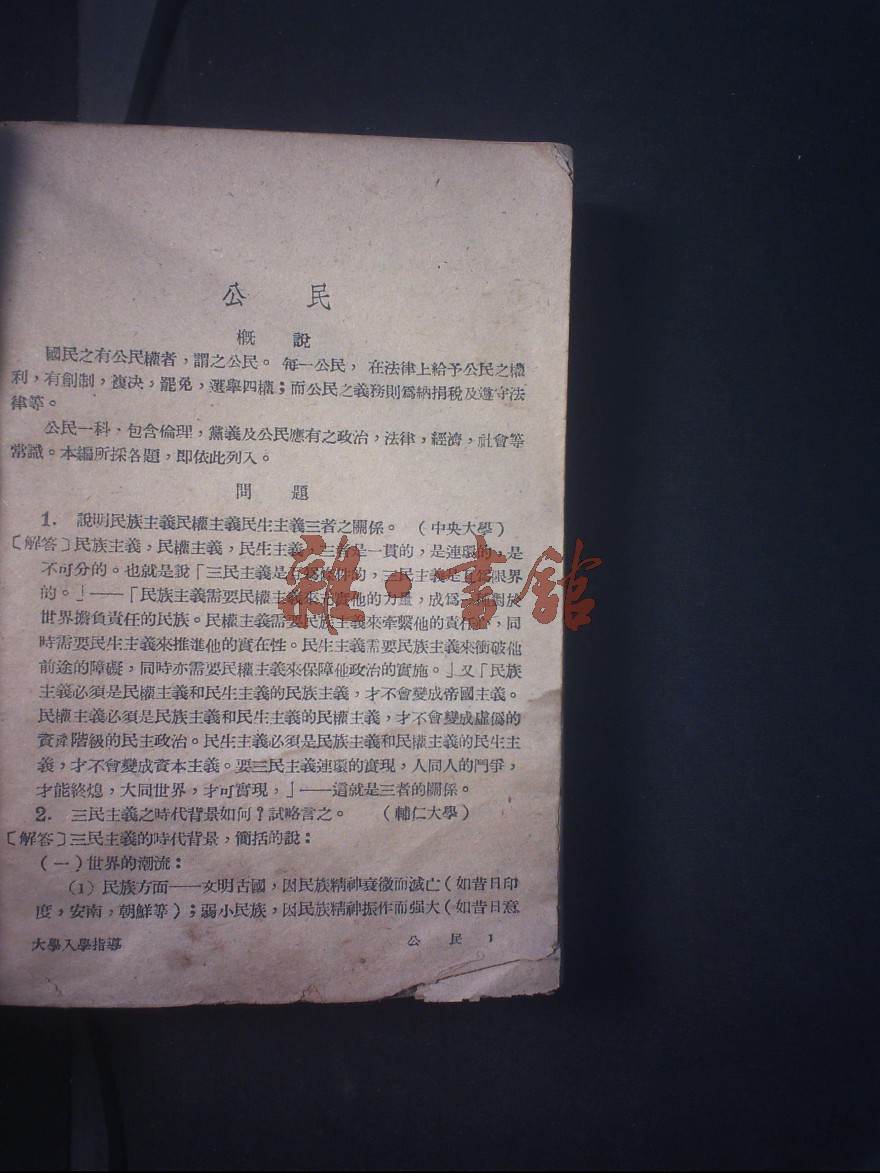 公民
概說
國民之有公民權者，謂之公民。每一公民，在法律上給予公民之權
利，有創制，複决，罷免，選舉四權；而公民之義務則爲納捐税及遵守法
律等。
公民一科，包含倫理，黨義及公民應有之政治，法律，經濟，社會等
常識。本編所採各題，即依此列入。
問題
1. 說明民族主義民權主義民生主義三者之關係。（中央大學）
〔解答〕民族主義，民權主義，民生主義，三者是一貫的，是連環的，是
不可分的。也就是說「三民主義是互爲條件的，三民主義是互爲限界
的。」——「民族主義需要民權主義來充實他的力量，成爲一種對於
世界擔負責任的民族。民權主義需要民族主義來牽繫他的責任心，同
時需要民生主義來推進他的實在性。民生主義需要民族主義來衝破他
前途的障礙，同時亦需要民權主義來保障他政治的實施。」又「民族
主義必須是民權主義和民生主義的民族主義，才不會變成帝國主義。
民權主義必須是民族主義和民生主義的民權主義，才不會變成虛僞的
資產階級的民主政治。民生主義必須是民族主義和民權主義的民生主
義，才不會變成資本主義。要三民主義連環的實現，人同人的鬥爭，
才能終熄，大同世界，才可實現，」——這就是三者的關係。
2. 三民主義之時代背景如何？試略言之。（輔仁大學）
〔解答〕三民主義的時代背景，簡括的說：
（一）世界的潮流：
（1）民族方面——文明古國，因民族精神衰微而滅亡（如昔日印
度，安南，朝鮮等）；弱小民族，因民族精神振作而强大（如昔日意
大學入學指導 公民 1
雜·書館